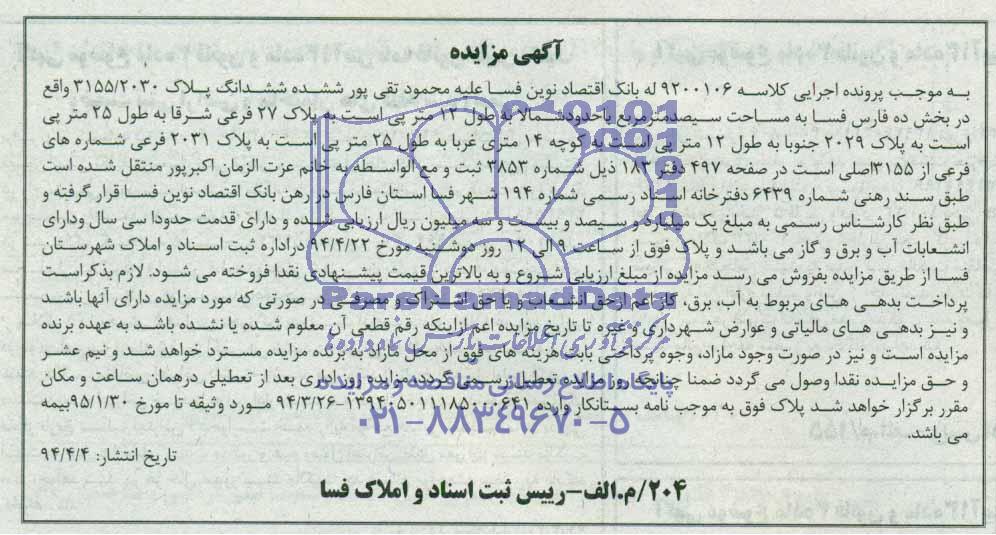 آگهی مزایده
به موجب پرونده اجرایی کلاسه ۹۲۰۰۱۰۶ له بانک اقتصاد نوین فسا علیه محمود تقی پور ششده ششدانگ پلاک ۳۱۵۵/۲۰۳۰ واقع
در بخش ده فارس فسا به مساحت سیصدمترمربع باحدودشمالا به طول ۱۲ متر پی است به پلاک ۲۷ فرعی شرقا به طول ۲۵ متر پی
است به پلاک ۲۰۲۹ جنوبا به طول ۱۲ متر پی است به کوچه ۱۴ متری غربا به طول ۲۵ متر پی است به پلاک ۲۰۳۱ فرعی شماره های
فرعی از ۳۱۵۵اصلی است در صفحه ۴۹۷ دفتر ۱۸۳ ذیل شماره ۳۸۵۳ ثبت و مع الواسطه به خانم عزت الزمان اکبرپور منتقل شده است
طبق سند رهنی شماره ۶۴۳۹ دفترخانه اسناد رسمی شماره ۱۹۴ شهر فسا استان فارس در رهن بانک اقتصاد نوین فسا قرار گرفته و
طبق نظر کارشناس رسمی به مبلغ یک میلیارد و سیصد و بیست و سه میلیون ریال ارزیابی شده و دارای قدمت حدودا سی سال ودارای
انشعابات آب و برق و گاز می باشد و پلاک فوق از ساعت ۹ الی ۱۲ روز دوشنبه مورخ ۹۴/۴/۲۲ دراداره ثبت اسناد و املاک شهرستان
فسا از طریق مزایده بفروش می رسد مزایده از مبلغ ارزیابی شروع و به بالاترین قیمت پیشنهادی نقدا فروخته می شود. لازم بذکراست
پرداخت بدهی های مربوط به آب، برق، گاز اعم ازحق انشعاب و یا حق اشتراک و مصرفی در صورتی که مورد مزایده دارای آنها باشد
و نیز بدهی های مالیاتی و عوارض شهرداری و غیره تا تاریخ مزایده اعم ازاینکه رقم قطعی آن معلوم شده یا نشده باشد به عهده برنده
مزایده است و نیز در صورت وجود مازاد، وجوه پرداختی بابت هزینه های فوق از محل مازاد به برنده مزایده مسترد خواهد شد و نیم عشر
و حق مزایده نقدا وصول می گردد ضمنا چنانچه روز مزایده تعطیل رسمی گردد مزایده روز اداری بعد از تعطیلی درهمان ساعت و مکان
مقرر برگزار خواهد شد پلاک فوق به موجب نامه بستانکار وارده ۹۴/۳/۲۶-۱۳۹۴۰۵۰۱۱۱۸۵۰۰۰۶۴۱ مورد وثیقه تا مورخ ۹۵/۱/۳۰بیمه
می باشد.
تاریخ انتشار: ۹۴/۴/۴
۲۰۴/م.الف-رییس ثبت اسناد و املاک فسا
ParsNamadData
مرکز فرآوری اطلاعات پارس نماد داده ها
پایگاه اطلاع رسانی مناقصه و مزایده
۰۲۱-۸۸۳۴۹۶۷۰-۵